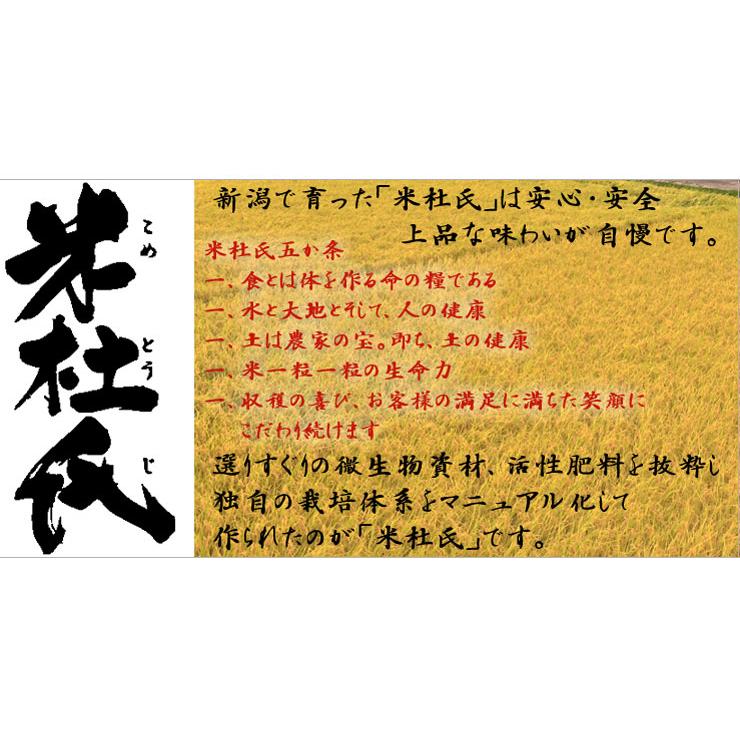 米杜氏
こめとうじ
新潟で育った「米杜氏」は安心・安全
上品な味わいが自慢です。
米杜氏五か条
一、食とは体を作る命の糧である
一、水と大地とそして、人の健康
一、土は農家の宝。即ち、土の健康
一、米一粒一粒の生命力
一、収穫の喜び、お客様の満足に満ちた笑顔に
こだわり続けます
選りすぐりの微生物資材、活性肥料を抜粋し
独自の栽培体系をマニュアル化して
作られたのが「米杜氏」です。